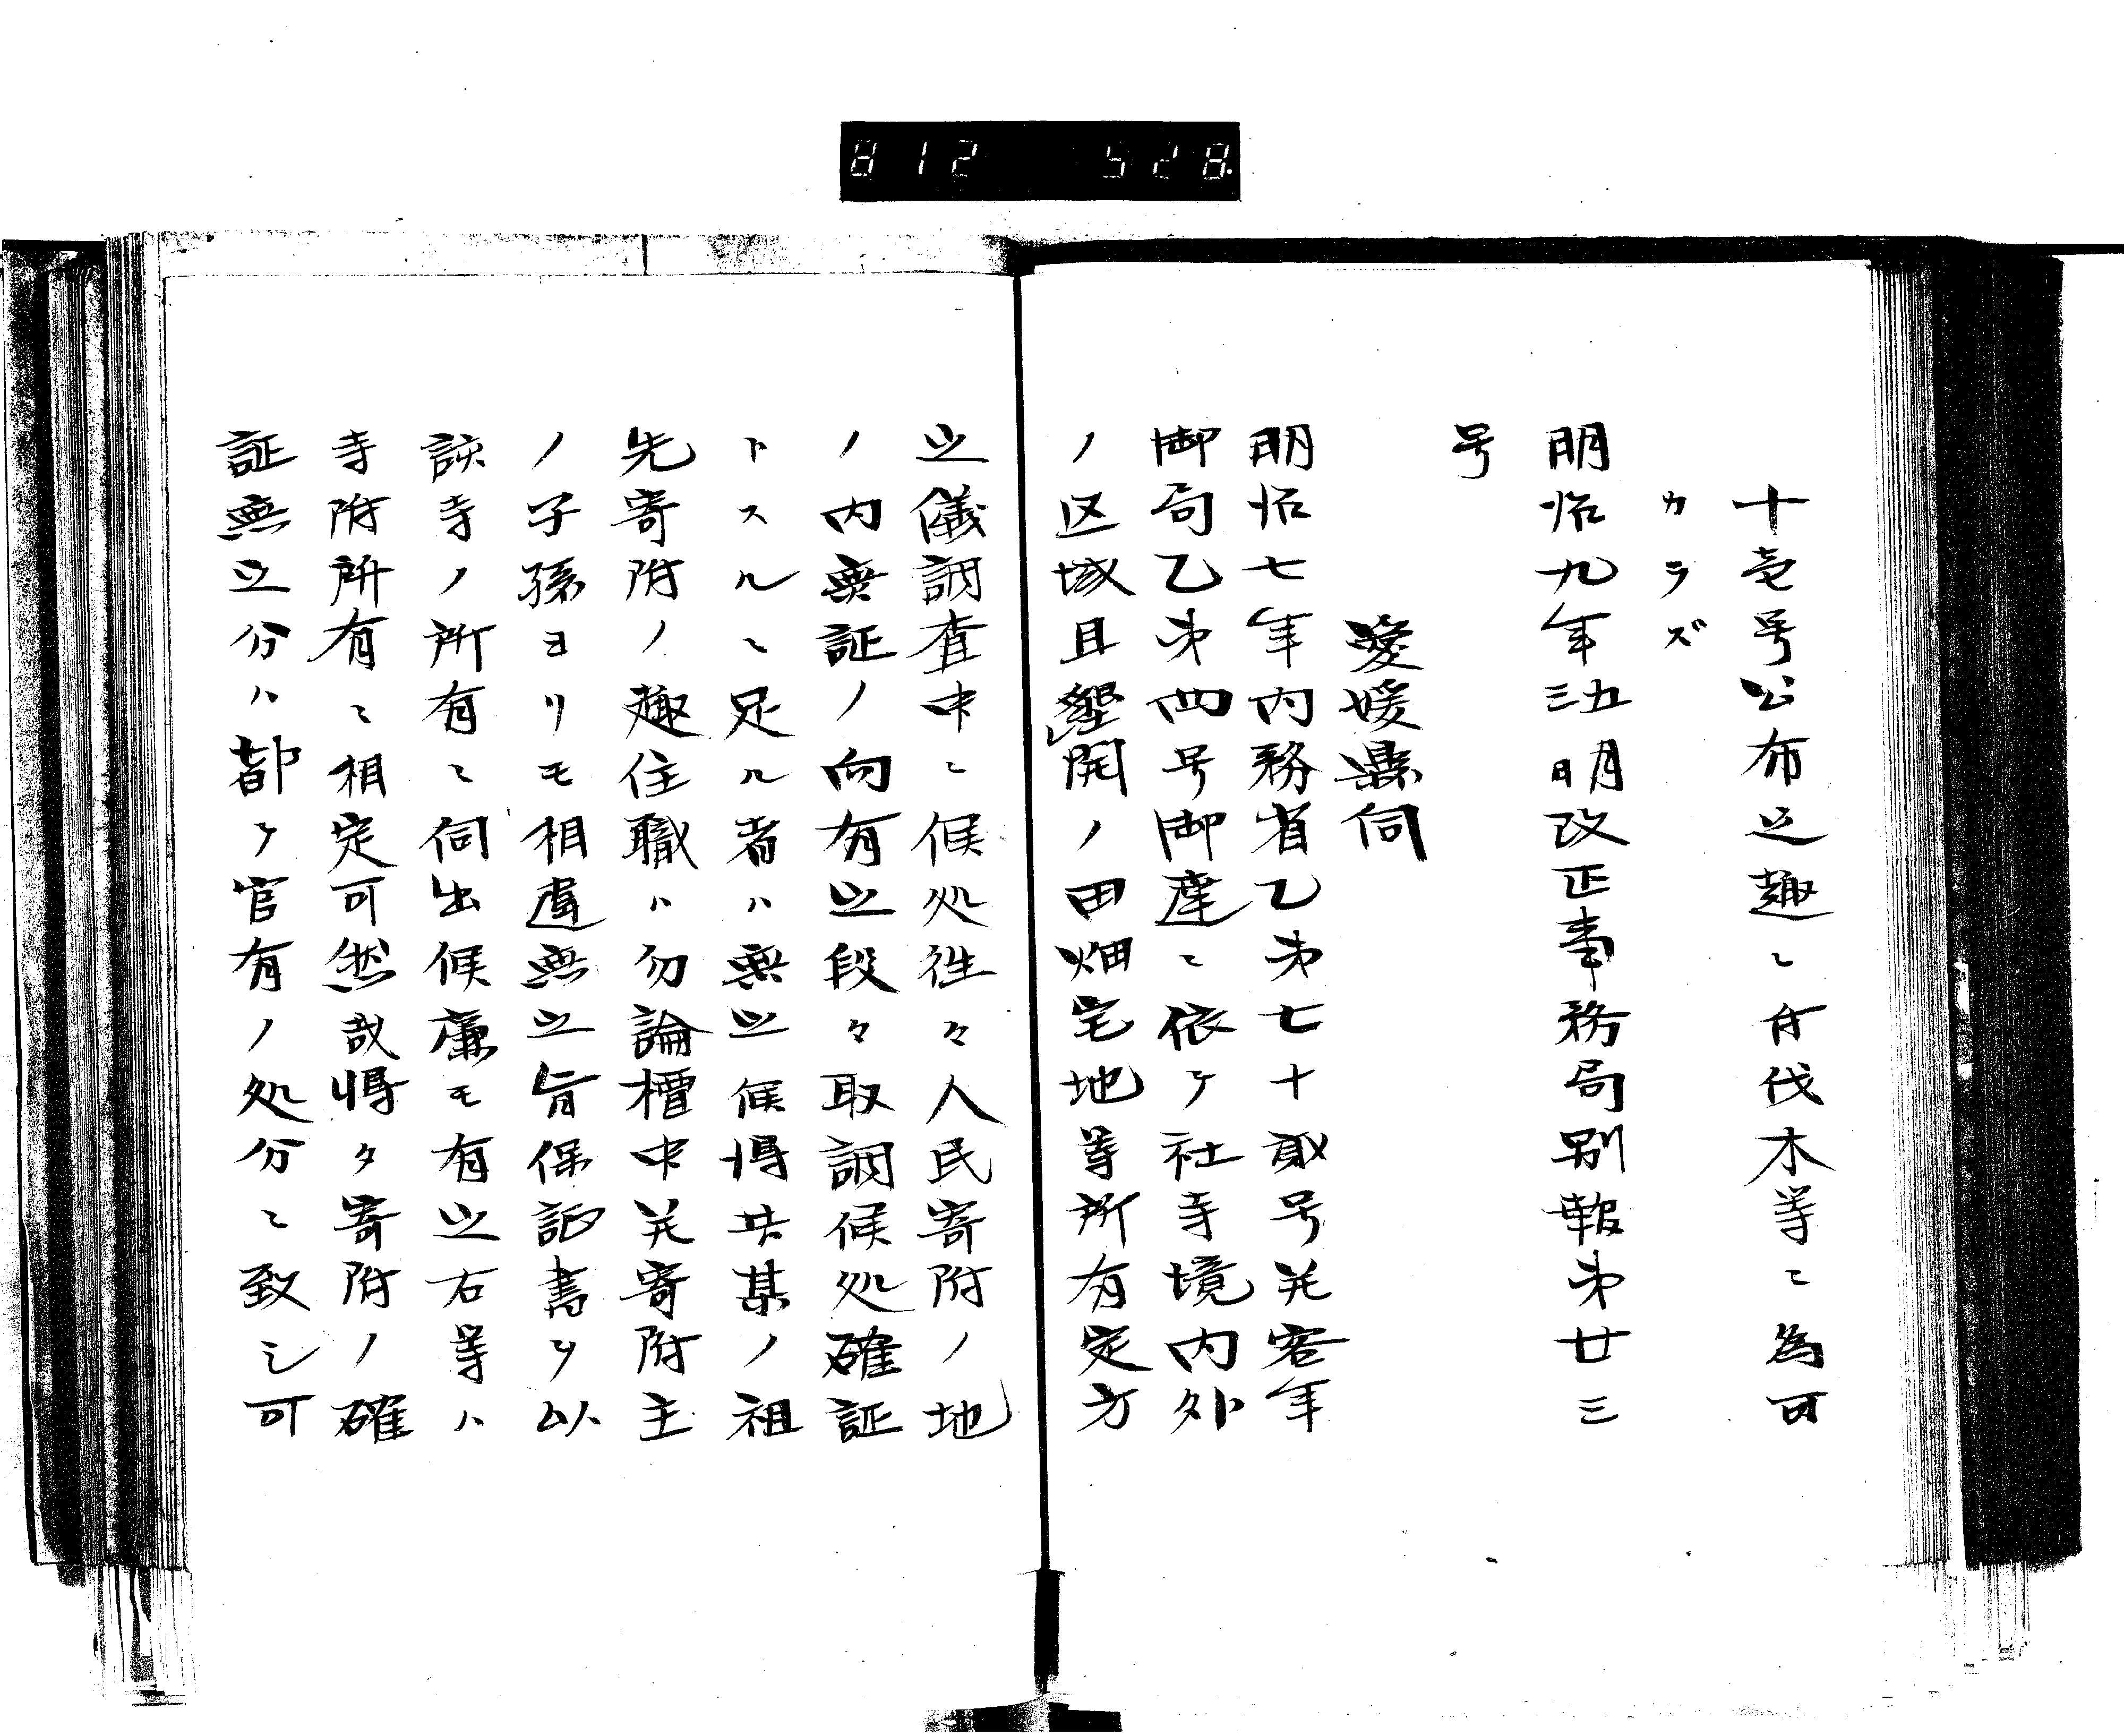 812 528
十壱号公布之趣ニ付伐木等ニ為可
カラズ
明治九年五月三日改正事務局別報第廿三
号
愛媛県伺
明治七年内務省乙第七十貳号并客年
御局乙第四号御達ニ依テ社寺境内外
ノ区域且墾開ノ田畑宅地等所有定方
之儀調査中ニ候処往々人民寄附ノ地
ノ内無証ノ向有之段々取調候処確証
トスルニ足ル者ハ無之候得共某ノ祖
先寄附ノ趣住職ハ勿論檀中并寄附主
ノ子孫ヨリモ相違無之旨保証書ヲ以
該寺ノ所有ニ伺出候廉モ有之右等ハ
寺附所有ニ相定可然哉将タ寄附ノ確
証無之分ハ都テ官有ノ処分ニ致シ可